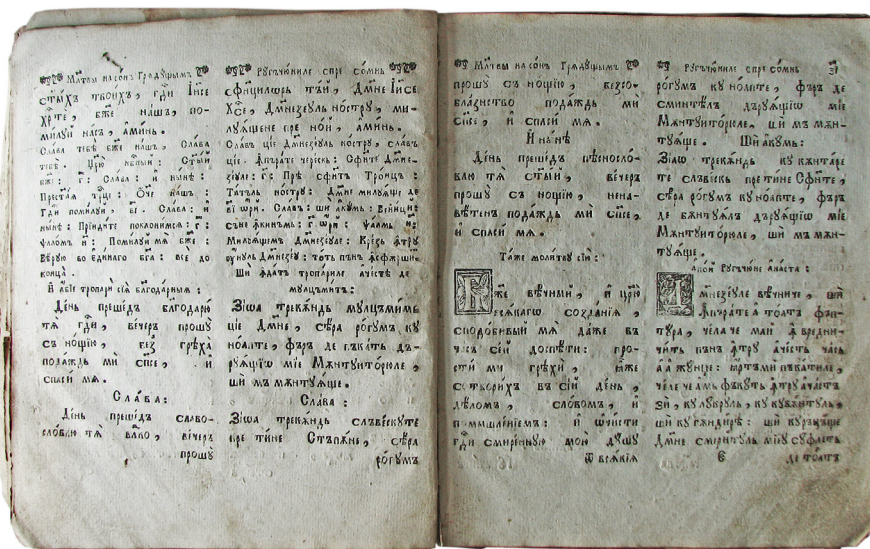 Мл҃твы на со́нъ Грѧду́щымъ
ст҃ы́хъ твои́хъ, гдⷭ҇и І҆и҃се
Хрⷭ҇те́, бж҃е на́шъ, по-
ми́луй на́съ, а҆ми́нь.
Сла́ва тебѣ̀ бж҃е на́шъ, Сла́ва
тебѣ̀. Цр҃ю̀ нбⷭ҇ный: Ст҃ы́й
бж҃е: г҃: Сла́ва: и҆ ны́нѣ:
Прест҃а́ѧ трⷪ҇це: Ѻ҆́ч҃е на́шъ:
Гдⷭ҇и поми́луй, в҃і. Сла́ва: и҆
ны́нѣ: Прїиди́те поклони́мсѧ: г҃:
ѱало́мъ н҃: Поми́луй мѧ̀ бж҃е:
Вѣ́рую во є҆ди́наго бг҃а: всѐ до
конца̀.
И҆ а҆́бїе тропарѝ сїѧ̑ благода̑рныѧ:
Де́нь преше́дъ благодарю̀
тѧ̀ гдⷭ҇и, ве́черъ прошꙋ̀
съ но́щїю, без̾ грѣха̀
пода́ждь мѝ сп҃се, и҆
спасѝ мѧ̀.
Сла́ва:
Де́нь преше́дъ славо-
сло́влю тѧ̀ влⷣко, ве́черъ
прошꙋ̀
Рꙋгъчю́ниле спре со́мнь
сфи́нцилѡрь тъ́й, Дм҃не І҆и҃се
Хс҃е, Дм҃незеꙋль но́стрꙋ, ми-
лꙋѧ́щене пре но́й, а҆ми́нь.
Сла́въ ці́е Дм҃незеꙋль но́стрꙋ, сла́въ
ці́е. Ꙟпъра́те чере́скъ: Сфи́нте Дм҃не-
зеꙋле: г҃: Прѣ̀ сфи́нтъ Тро́ицъ:
Та́тъль но́стрꙋ: Дм҃не милꙋѧ́ще де
в҃і ѡ҆рй. Сла́въ: ши а҆кꙋ́мь: Вени́ци:
съ не ꙟкинъ́мь: г҃ ѡ҆рй: ѱа́лмь н҃:
Милꙋѧ́щимъ Дм҃незеꙋле: Кре́зь ꙟтрꙋ
ꙋ҆нꙋль Дм҃незеꙋ: то́ть пъ́нъ ꙟсфъ́ршит
Ши ꙟда́тъ тропа́риле ачѣ́сте де
мꙋлцъми́тъ:
Зі́ѡа трекѫ́ндь мꙋлцъми́мь
ці́е Дм҃не, сѣ́ра ро́гꙋмъ кꙋ
ноа́пте, фъ́ръ де пъка́ть дъ-
рꙋѧщїѡ мі́е Мѫнтꙋито́рюле,
ши мъ мѫнтꙋѧ́ще.
Сла́ва:
Зі́ѡа трекѫ́ндь слъве́скꙋте
пре ти́не Стъпѫ́не, сѣ́ра
ро́гꙋмъ
Мл҃твы на со́нъ Грѧду́щымъ
прошꙋ̀ съ но́щїю, безсо-
бла́знство пода́ждь мѝ
сп҃се, и҆ спасѝ мѧ̀.
И҆ ны́нѣ
Де́нь преше́дъ пѣсносло́-
влю тѧ̀ ст҃ы́й, ве́черъ
прошꙋ̀ съ но́щїю, нена-
вѣ́тенъ пода́ждь мѝ сп҃се,
и҆ спасѝ мѧ̀.
Та́же моли́твꙋ сїю̀:
Бж҃е вѣ́чный, и҆ цр҃ю̀
всѧ́кагѡ созда́нїѧ,
сподо́бивый мѧ̀ да́же въ
ча́съ се́й доспѣ́ти: про-
стѝ ми грѣхѝ, ꙗ҆̀же
сотвори́хъ въ сі́й де́нь,
дѣ́ломъ, сло́вомъ, и҆
помышле́нїемъ: и҆ ѡ҆чи́сти
гдⷭ҇и смире́ннꙋю мою̀ дꙋ́шꙋ
ѿ всѧ́кїѧ
Рꙋгъчю́ниле спре со́мнь
ро́гꙋмъ кꙋ ноа́пте, фъ́ръ де
сминтѣ́лъ дърꙋѧщїѡ мі́е
Мѫнтꙋито́рюле. ши мъ мѫн-
тꙋѧ́ще. Ши а҆кꙋ́мь:
Зі́ѡа трекѫ́ндь кꙋ кѫнта́ре
те слъве́скь пре ти́не Сфи́нте,
сѣ́ра ро́гꙋмъ кꙋ ноа́пте, фъ́ръ
де бѫнтꙋѧ́лъ дърꙋѧщїѡ мі́е
Мѫнтꙋито́рюле, ши мъ мѫн-
тꙋѧ́ще.
Апо́й Рꙋгъчю́не ача́ста:
Дм҃незеꙋле вѣ́чниче, ши
ꙟпъра́те а то́атъ фъп-
тꙋ́ра, че́ла че ма́й ꙟвредни-
чи́ть пъ́нъ ꙟтрꙋ ачѣ́сть ча́сь
а ажꙋ́нще: ꙗ҆ртъми пъка́тиле,
че́ле че амь фъкꙋ́ть ꙟтрꙋ ача́стъ
зѝ, кꙋ лꙋ́крꙋль, кꙋ кꙋвѫ́нтꙋль,
ши кꙋ гѫ́ндирѣ: ши кꙋръцъ́ще
Дм҃не смери́тꙋль мі́еꙋ сꙋ́флеть
є҃ де то́атъ